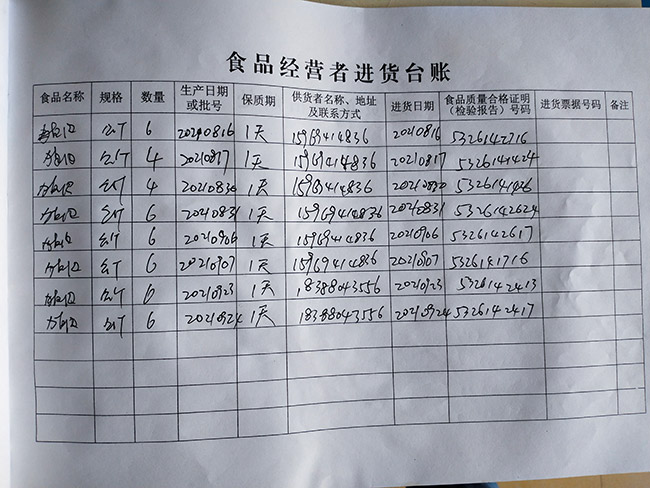 食品经营者进货台账
食品名称 规格 数量 生产日期或批号 保质期 供货者名称、地址及联系方式 进货日期 食品质量合格证明(检验报告)号码 进货票据号码 备注
公斤 6 20210816 1天 15969414836 20210816 5326142716
公斤 4 20210817 1天 15969414836 20210817 5326141424
公斤 4 20210830 1天 15969414836 20210830
公斤 6 20210831 1天 15969414836 20210831 5326142624
公斤 6 20210906 1天 15969414836 20210906 5326142617
公斤 6 20210907 1天 15969414836 20210907 5326141716
公斤 6 20210923 1天 18388043556 20210923 5326142413
公斤 6 20210924 1天 18388043556 20210924 5326142417